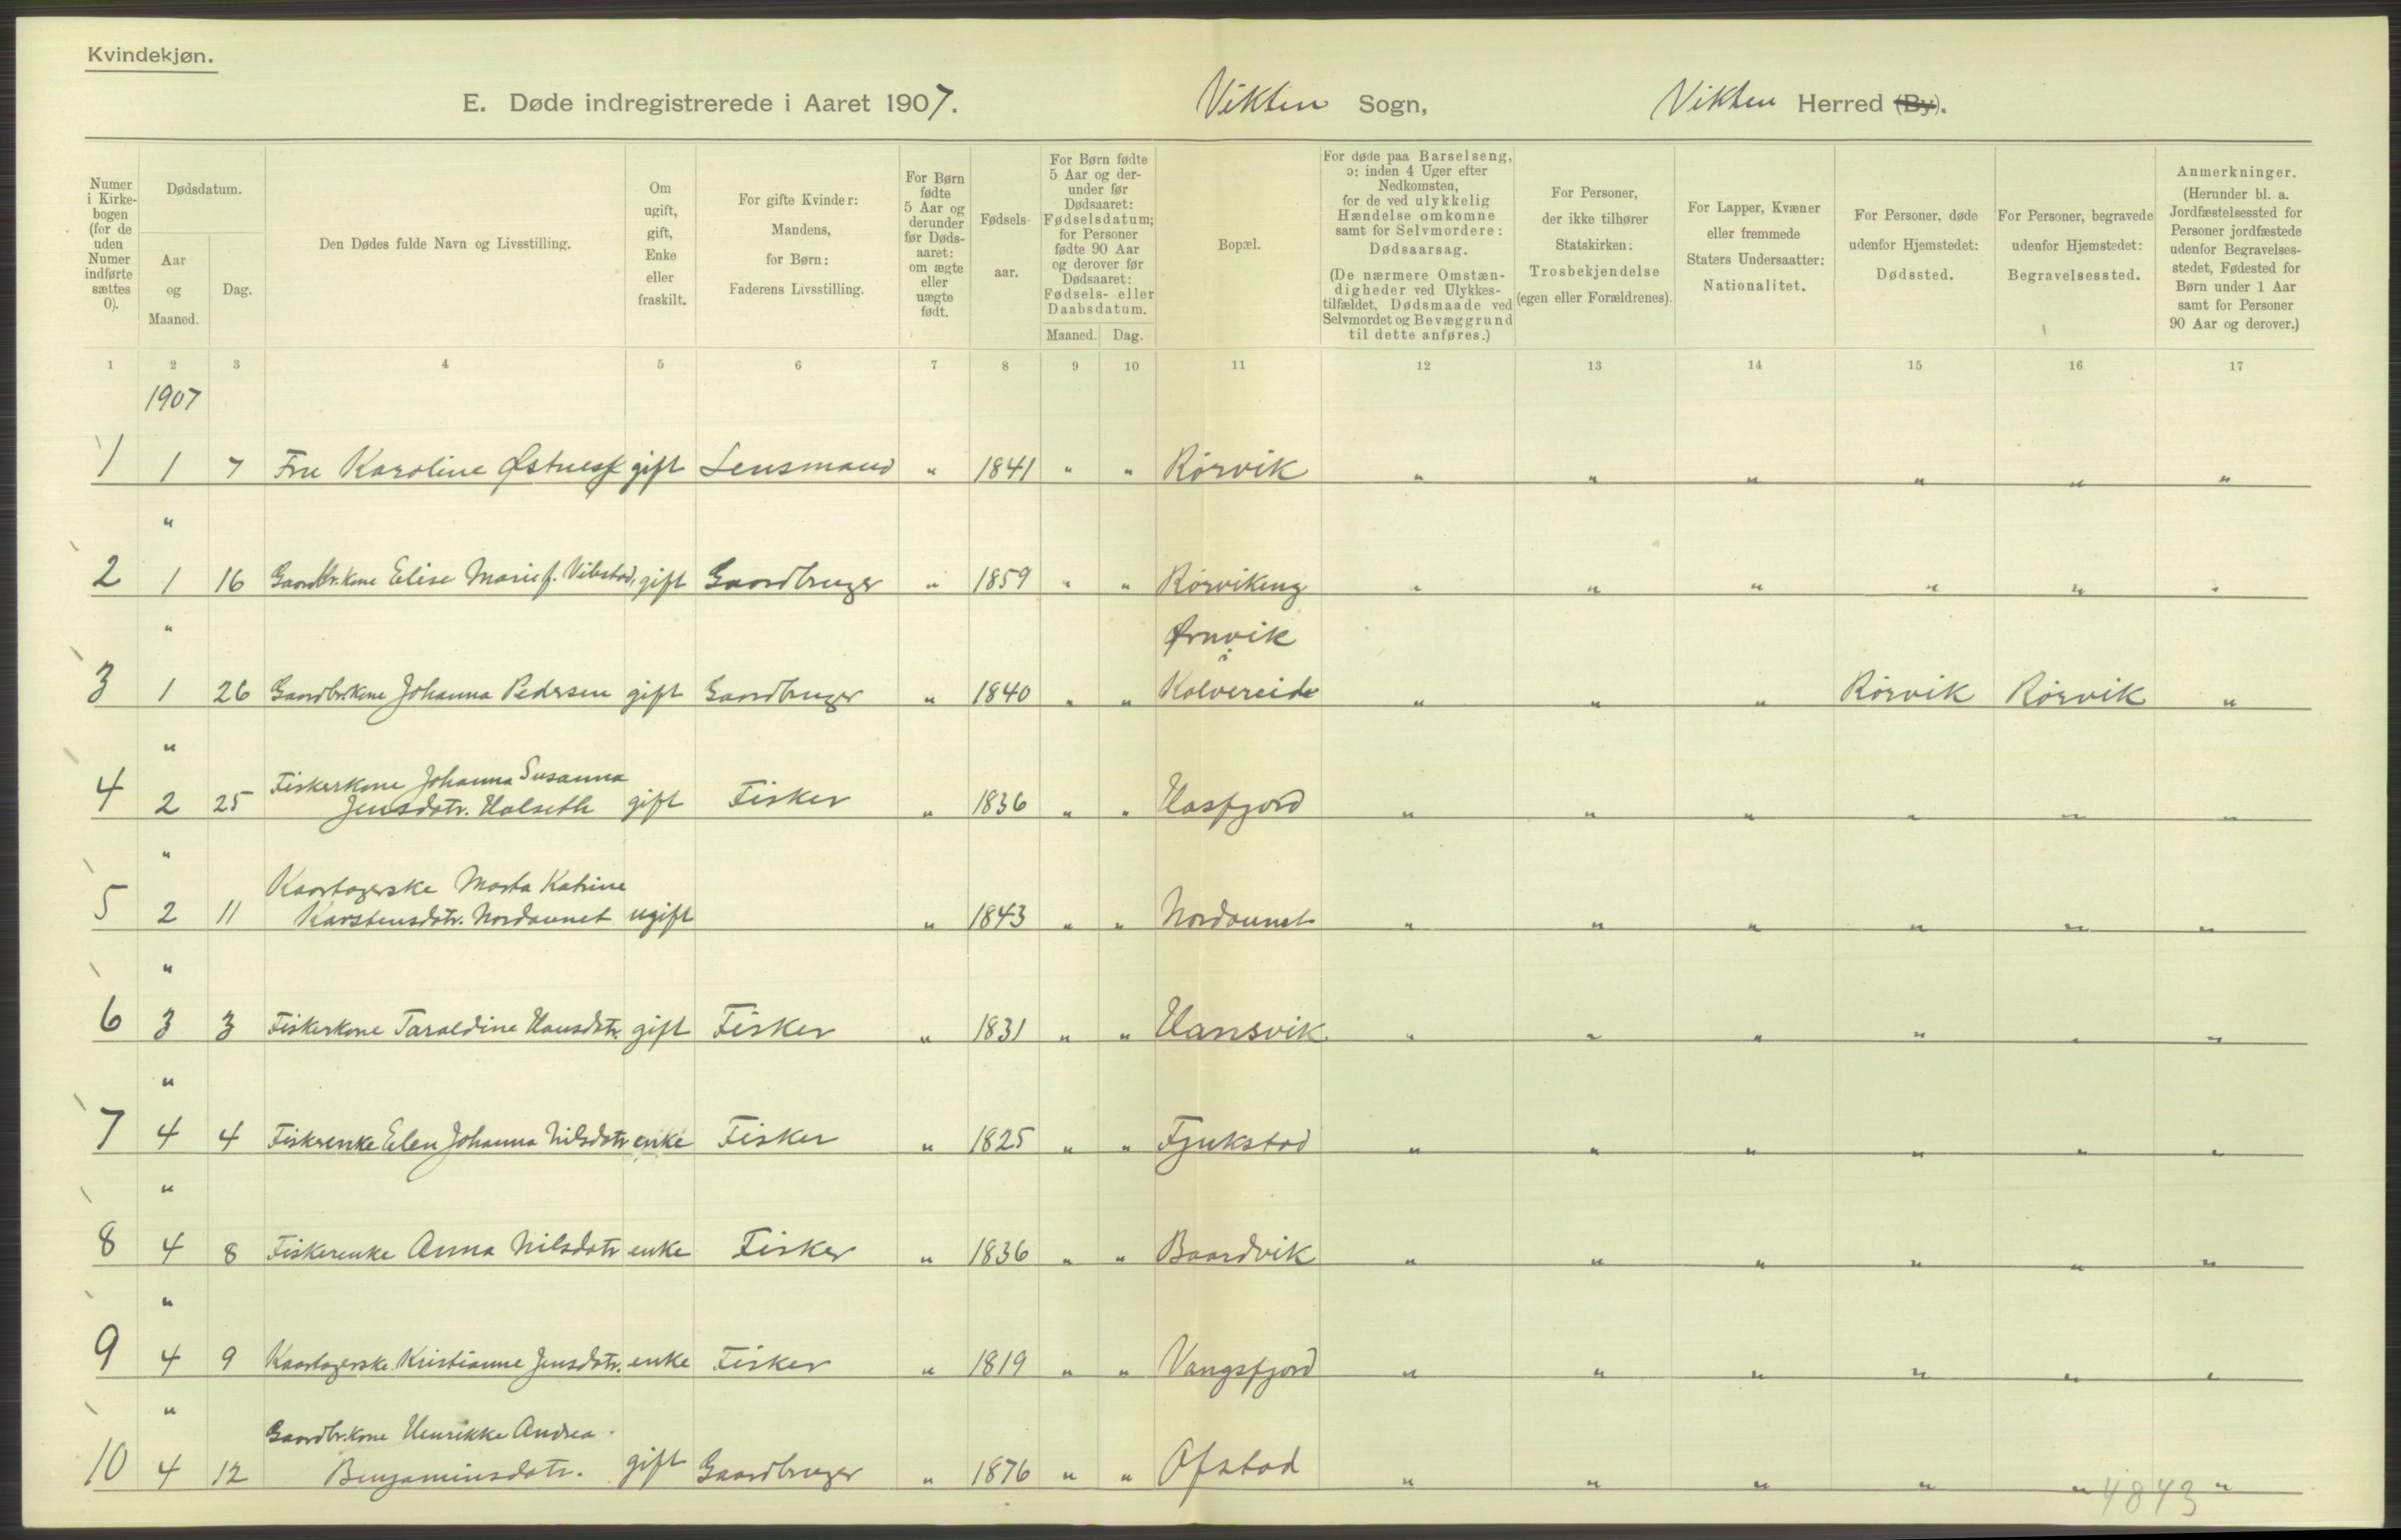 Kvindekjøn.
E. Døde indregistrerede i Aaret 1907. Vikten Sogn, Vikten Herred (By).
Numer i Kirke-bogen (for de uden Numer indførte sættes 0).
Dødsdatum.
Aar og Maaned.
Dag.
Den Dødes fulde Navn og Livsstilling.
Om ugift, gift, Enke eller fraskilt.
For gifte Kvinder: Mandens, for Børn: Faderens Livsstilling.
For Børn fødte 5 Aar og derunder før Døds-aaret: om ægte eller uægte født.
Fødsels-aar.
For Børn fødte 5 Aar og der-under før Dødsaaret: Fødselsdatum; for Personer fødte 90 Aar og derover før Dødsaaret: Fødsels- eller Daabsdatum.
Maaned. Dag.
Bopæl.
For døde paa Barselseng, ɔ: inden 4 Uger efter Nedkomsten, for de ved ulykkelig Hændelse omkomne samt for Selvmordere: Dødsaarsag. (De nærmere Omstæn-digheder ved Ulykkes-tilfældet, Dødsmaade ved Selvmordet og Bevæggrund til dette anføres.)
For Personer, der ikke tilhører Statskirken: Trosbekjendelse (egen eller Forældrenes).
For Lapper, Kvæner eller fremmede Staters Undersaatter: Nationalitet.
For Personer, døde udenfor Hjemstedet: Dødssted.
For Personer, begravede udenfor Hjemstedet: Begravelsessted.
Anmerkninger. (Herunder bl. a. Jordfæstelsessted for Personer jordfæstede udenfor Begravelses-stedet, Fødested for Børn under 1 Aar samt for Personer 90 Aar og derover.)
1 2 3 4 5 6 7 8 9 10 11 12 13 14 15 16 17
1907
1 1 7 Fru Karoline gift Lensmand " 1841 " " Rörvik " " " " " "
"
2 1 16 Gaardbr.kone Elise Marie f. Vibstad, gift Gaardbruger " 1859 " " Rörvikeng " " " " " "
" Ørnvik i
3 1 26 Gaardbr.kone Johanna Pedersen gift Gaardbruger " 1840 " " Kolvereide " " " Rörvik Rörvik "
" Fiskerkone Johanna Susanna
4 2 25 Jensdatr. Halseth gift Fisker " 1836 " " Hasfjord " " " " " "
" Kaartagerske Marta Katrine
5 2 11 Karstensdatr. Nordaunet ugift " 1843 " " Nordaunet " " " " " "
"
6 3 3 Fiskerkone Taraldine Hansdatr. gift Fisker " 1831 " " Hansvik " " " " " "
"
7 4 4 Fiskerenke Elen Johanna Nilsdatr enke Fisker " 1825 " " Fjukstad " " " " " "
"
8 4 8 Fiskerenke Anna Nilsdatr enke Fisker " 1836 " " Baardvik " " " " " "
"
9 4 9 Kaartagerske Kristianne Jensdatr. enke Fisker " 1819 " " Vangsfjord " " " " " "
" Gaardbr.kone Henrikke Andrea
10 4 12 Benjaminsdatr. gift Gaardbruger " 1876 " " Ofstad " " " " " "
4843